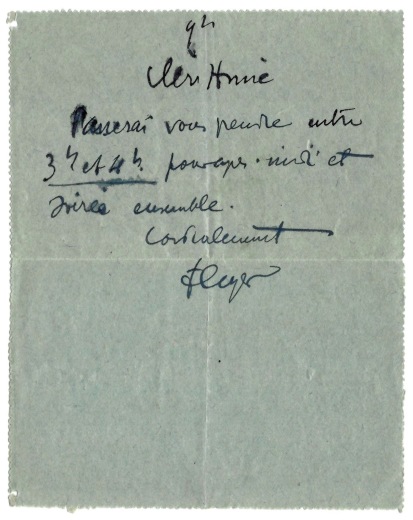 9h
Cher Ami
Passerai vous prendre entre
3h et 4h. pour après-midi et
soirée ensemble.
Cordialement
FLeger